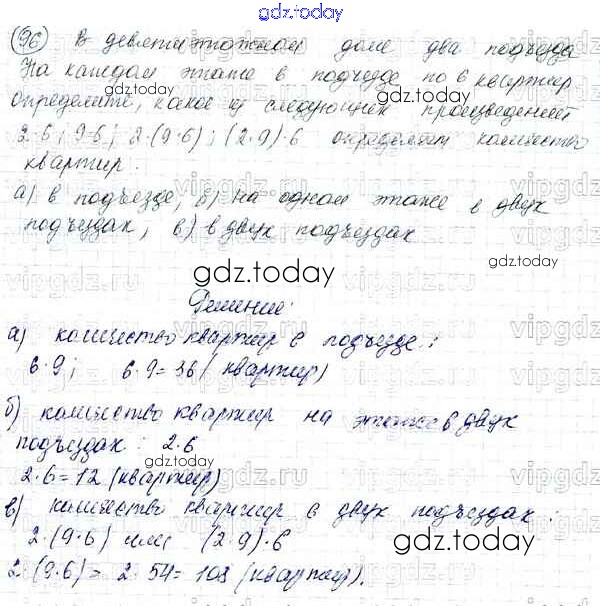 gdz.today
(96) В девятиэтажном доме два подъезда
На каждом этаже в подъезде по 6 квартир
gdz.today
определите, какое из следующих произведений
2·6; 9·6; 2·(9·6); (2·9)·6 определяет количество
квартир:
а) в подъезде, б) на одном этаже в двух
подъездах, в) в двух подъездах
gdz.today
Решение:
а) количество квартир в подъезде:
6·9; 6·9=36 (квартир)
gdz.today
б) количество квартир на этаже в двух
подъездах: 2·6
gdz.today
2·6=12 (квартир)
в) количество квартир в двух подъездах:
2·(9·6) или (2·9)·6
gdz.today
2·(9·6)= 2·54= 108 (квартир).